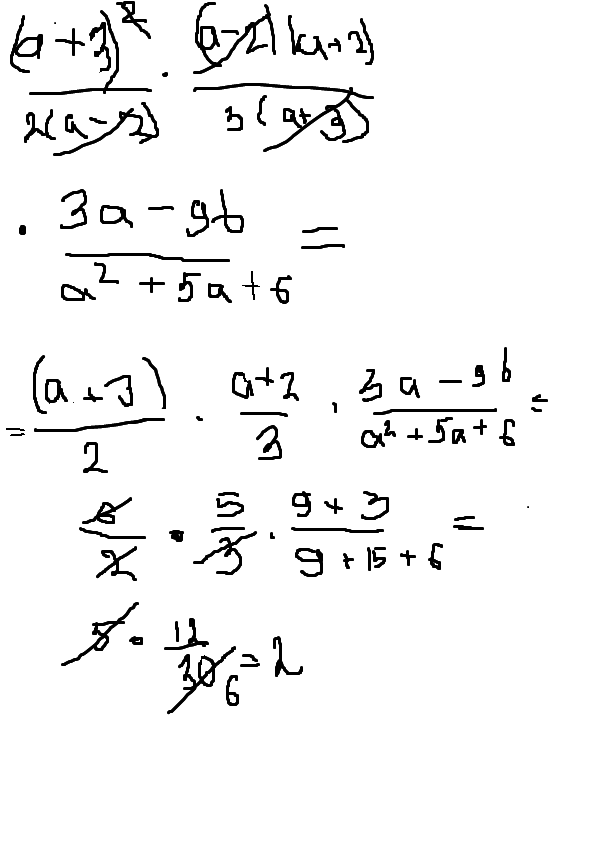 (a+3)²/2(a-2) · (a-2)(a+2)/3(a+3)
· 3a-9b/a²+5a+6 =
= (a+3)/2 · a+2/3 · 3a-9b/a²+5a+6 =
6/2 · 5/3 · 9+3/9+15+6 =
5 · 12/30 6 = 2